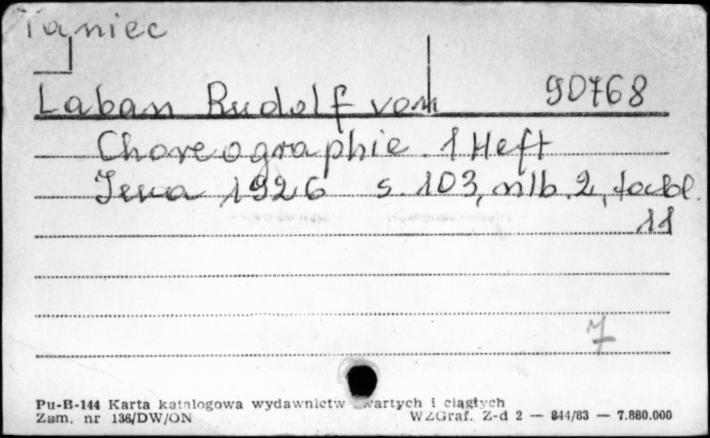 Taniec
Laban Rudolf von 90768
Choreographie. 1 Heft
Jena 1926 s. 103, nlb. 2, tabl.
11
7
Pu-B-144 Karta katalogowa wydawnictw zwartych i ciągłych
Zam. nr 136/DW/ON WZGraf. Z-d 2 — 844/83 — 7.880.000